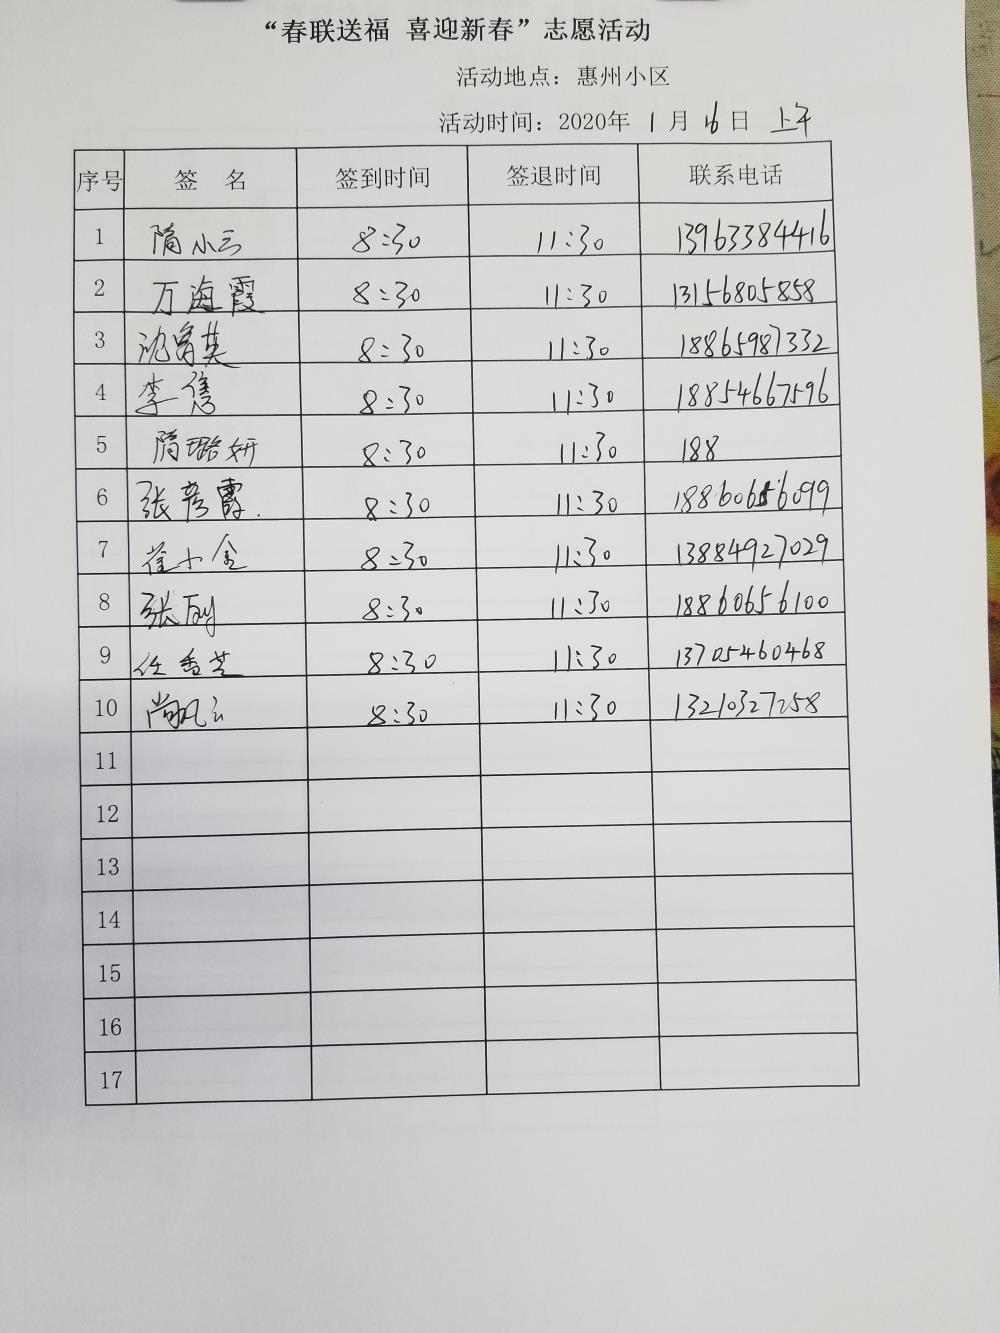 “春联送福 喜迎新春”志愿活动
活动地点：惠州小区
活动时间：2020年 1月16日 上午
序号 签 名 签到时间 签退时间 联系电话
1 隋小云 8:30 11:30 13963384416
2 万海霞 8:30 11:30 13156805858
3 8:30 11:30 18865987332
4 李隽 8:30 11:30 18854667596
5 隋璐妍 8:30 11:30 188
6 张彦霞 8:30 11:30 18860656099
7 崔小金 8:30 11:30 13884927029
8 张刚 8:30 11:30 18860656100
9 任香芝 8:30 11:30 13705460468
10 尚风云 8:30 11:30 13210327258
11
12
13
14
15
16
17